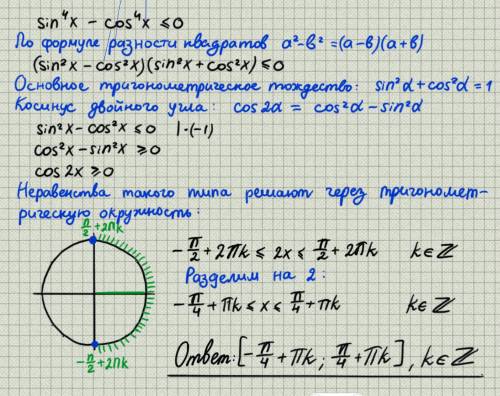 sin⁴x - cos⁴x ≤ 0
По формуле разности квадратов a²-b² = (a-b)(a+b)
(sin²x - cos²x)(sin²x + cos²x) ≤ 0
Основное тригонометрическое тождество: sin²α + cos²α = 1
Косинус двойного угла: cos2α = cos²α - sin²α
sin²x - cos²x ≤ 0 | · (-1)
cos²x - sin²x ≥ 0
cos 2x ≥ 0
Неравенства такого типа решают через тригономет-
рическую окружность:
π/2 + 2πk
-π/2 + 2πk ≤ 2x ≤ π/2 + 2πk k∈ℤ
Разделим на 2:
-π/4 + πk ≤ x ≤ π/4 + πk k∈ℤ
-π/2 + 2πk
Ответ: [-π/4 + πk; π/4 + πk], k∈ℤ